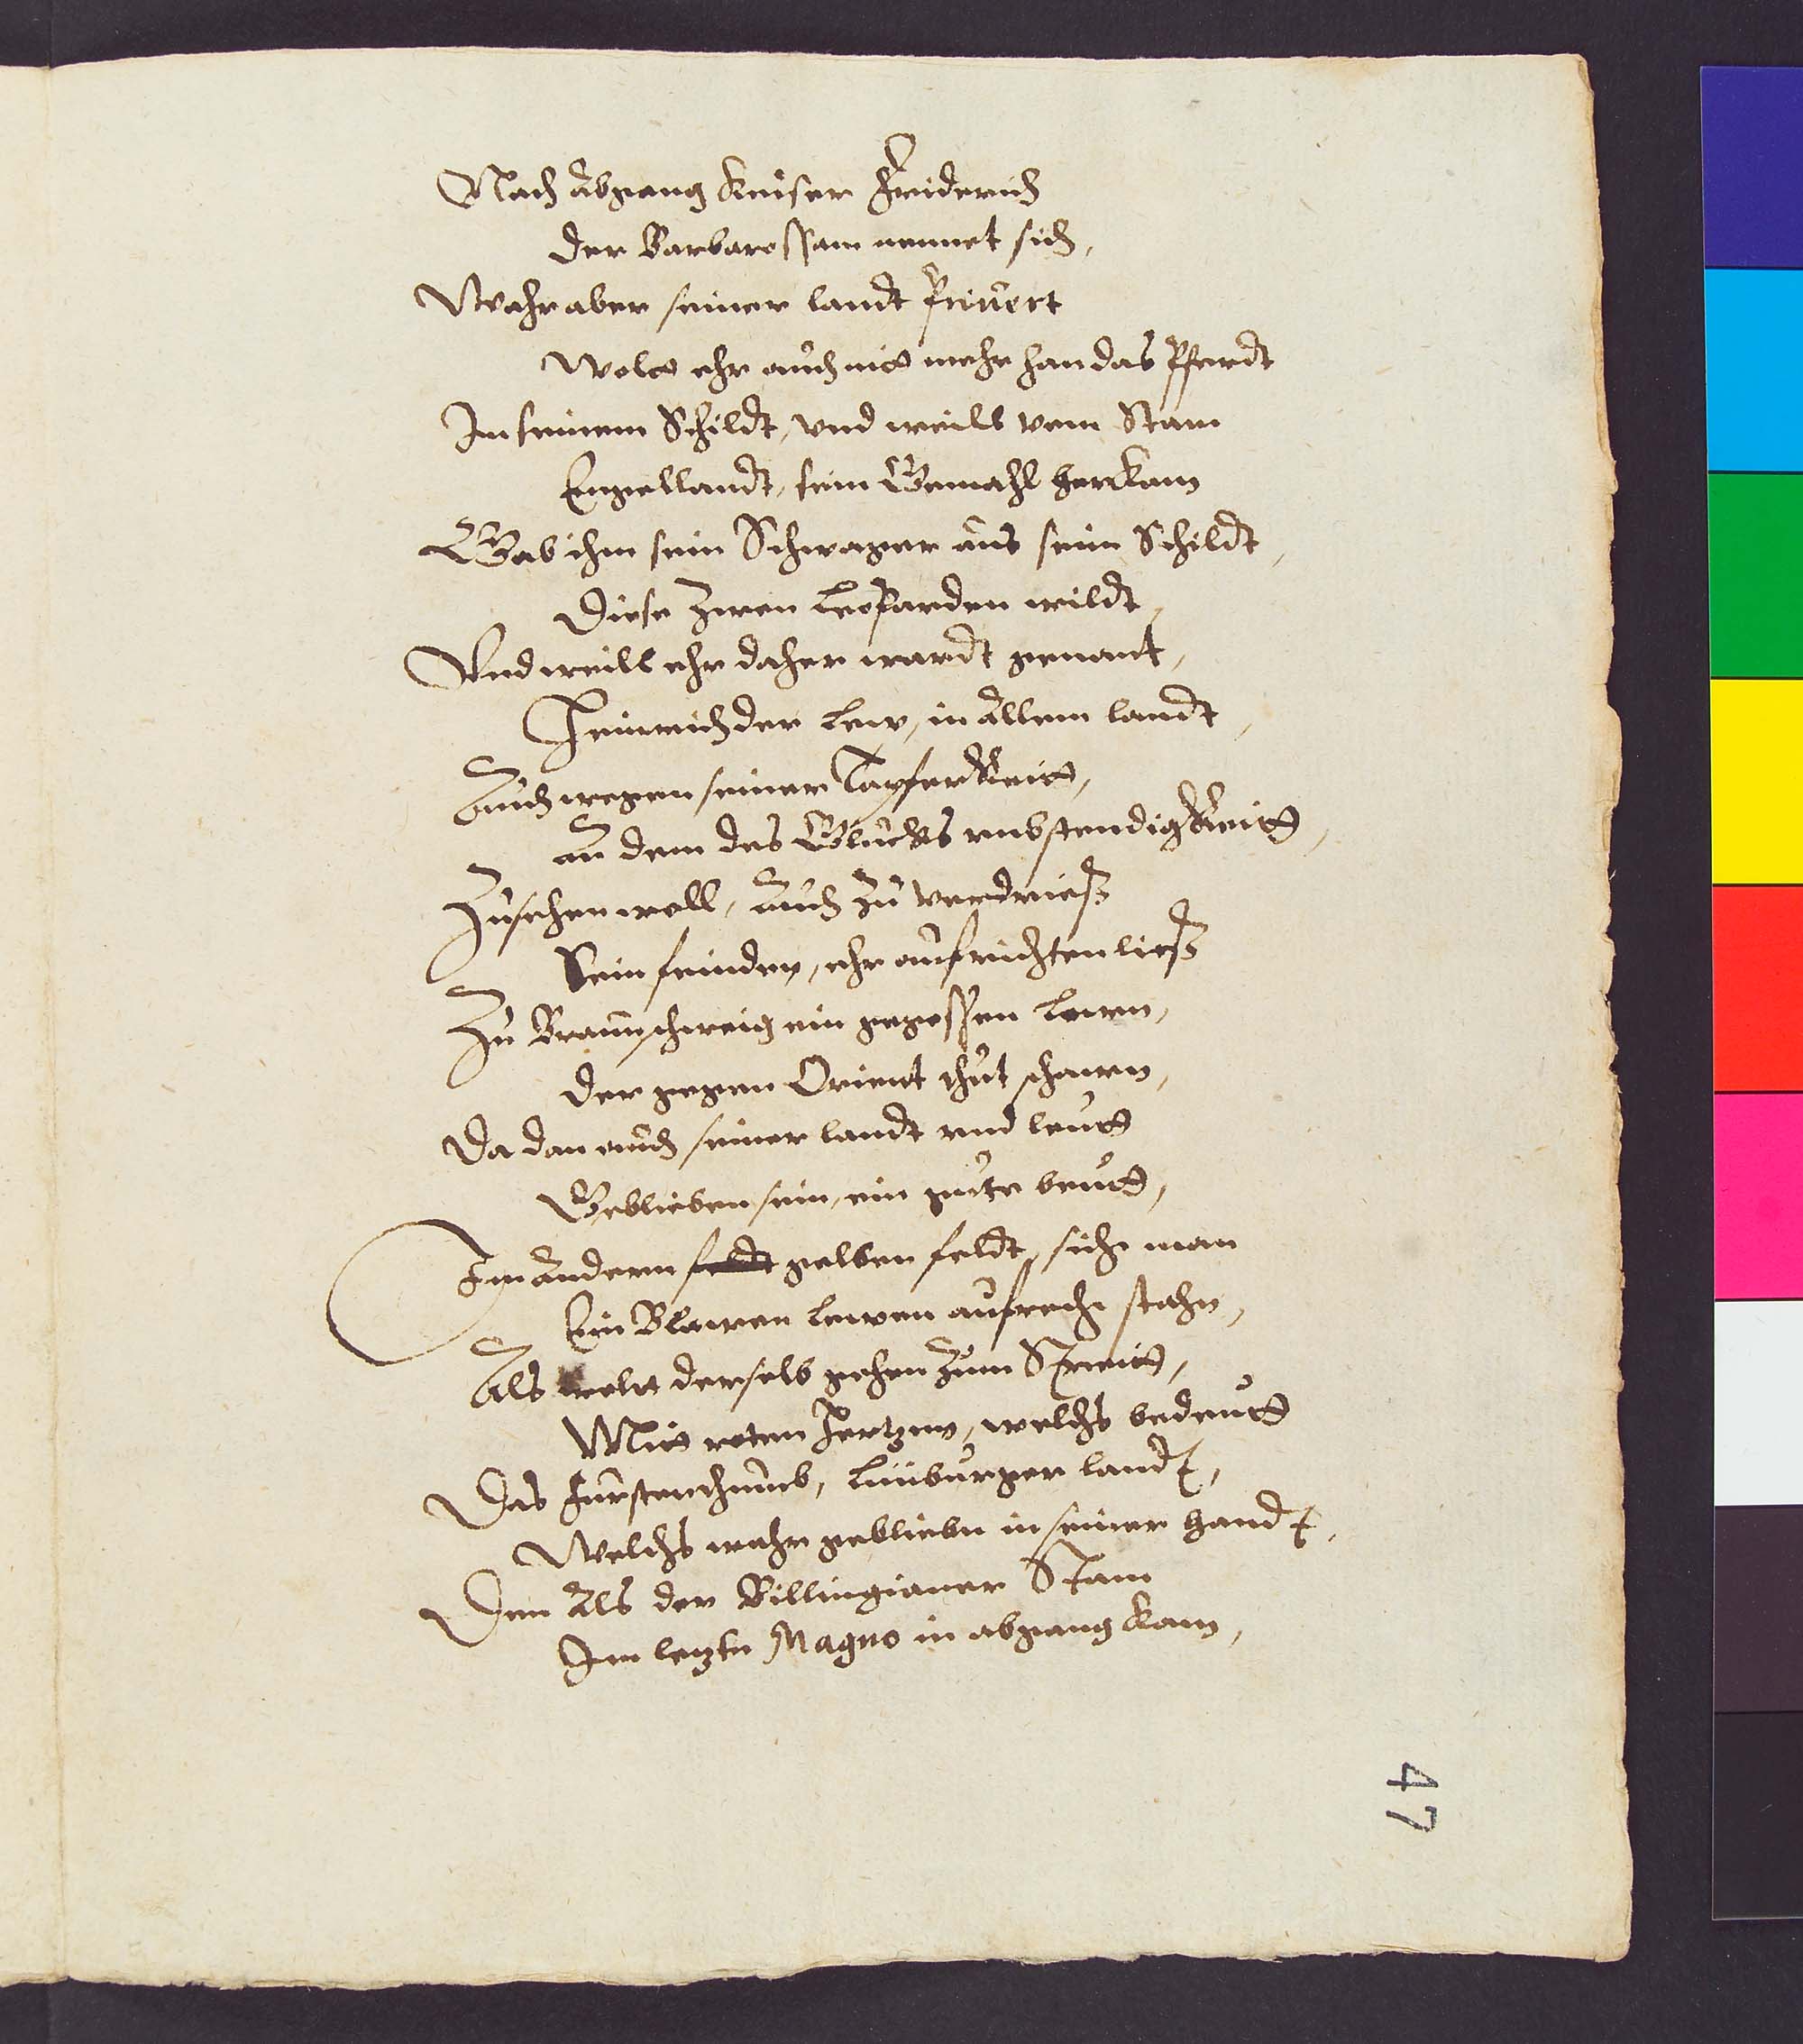 Nach abgang Keiser Friderich
der Barbarossam nennet sich,
Wahr aber seiner landt privert
Wolt ehr auch nit mehr han das Pferdt
In seinem Schildt, und weill vom Stam
Engellandt, sein Gemahl herkam
Gab ihm sein Schwager aus seim Schildt,
Diese zwen Leoparden wildt,
Und weill ehr daher wardt genant,
Heinrich der Lew, in allem landt,
Auch wegen seiner Tapferkeit,
an dem des Glucks unbstendigkeitt,
Zusehen woll, auch zu verdrieß
Sein feinden, ehr aufrichten ließ
Zu Braunschweig ein gegossen Lewen,
der gegen Orient thut schawen,
Da dan auch seiner landt und leutt
Geblieben sein, ein gute beutt,
Im andern feldt gelben feldt, sicht man
Ein Blawen Lewen aufrecht stahn,
Als wolt derselb gehen zum Streitt,
Mit roten Hertzen, welchs bedeutt
Das Furstenthumb, Lünburger landt,
Welchs wahr geblieben in seiner handt,
Den als der Billingianer Stam
Im letzten Magno in abgang kam,
47